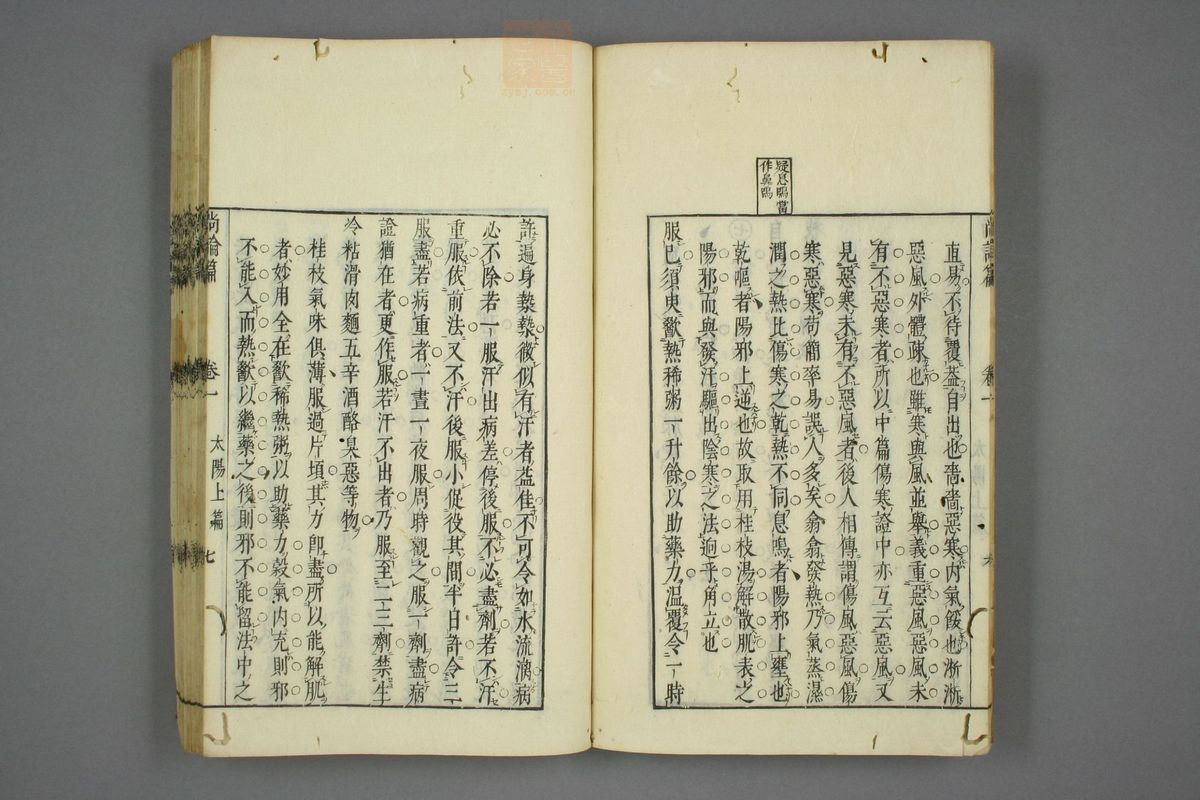 疑息鳴當
作鼻鳴
直易不待覆葢自出也嗇嗇惡寒内氣餒也淅淅
惡風外體疎也雖寒與風並舉義重惡風惡風未
有不惡寒者所以中篇傷寒證中亦互云惡風又
見惡寒未有不惡風者後人相傳謂傷風惡風傷
寒惡寒苟簡率易誤人多矣翕翕發熱乃氣蒸濕
潤之熱比傷寒之乾熱不同息鳴者陽邪上壅也
乾嘔者陽邪上逆也故取用桂枝湯解散肌表之
陽邪而與發汗驅出陰寒之法逈乎角立也
服已須臾歠熱稀粥一升餘以助藥力温覆令一時
許遍身漐漐微似有汗者益佳不可令如水流漓病
必不除若一服汗出病差停後服不必盡劑若不汗
重服依前法又不汗後服小促役其間半日許令三
服盡若病重者一晝一夜服周時觀之服一劑盡病
證猶在者更作服若汗不出者乃服至二三劑禁生
冷粘滑肉麵五辛酒酪臭惡等物
桂枝氣味俱薄服過片頃其力即盡所以能解肌
者妙用全在歠稀熱粥以助藥力穀氣内充則邪
不能入而熱歠以繼藥之後則邪不能留法中之
尚論篇 卷一 太陽上篇 七